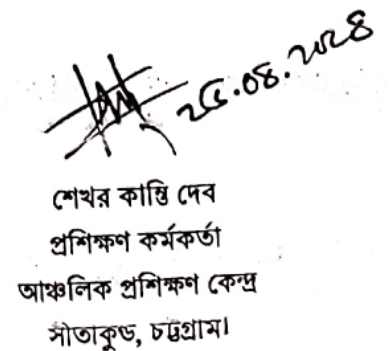 ২৫.০৪.২০২৪
শেখর কান্তি দেব
প্রশিক্ষণ কর্মকর্তা
আঞ্চলিক প্রশিক্ষণ কেন্দ্র
সীতাকুন্ড, চট্টগ্রাম।